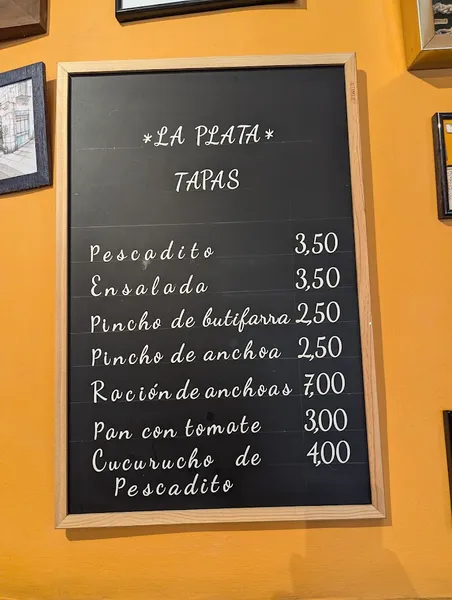 *LA PLATA*
TAPAS
Pescadito 3,50
Ensalada 3,50
Pincho de butifarra 2,50
Pincho de anchoa 2,50
Ración de anchoas 7,00
Pan con tomate 3,00
Cucurucho de 4,00
Pescadito